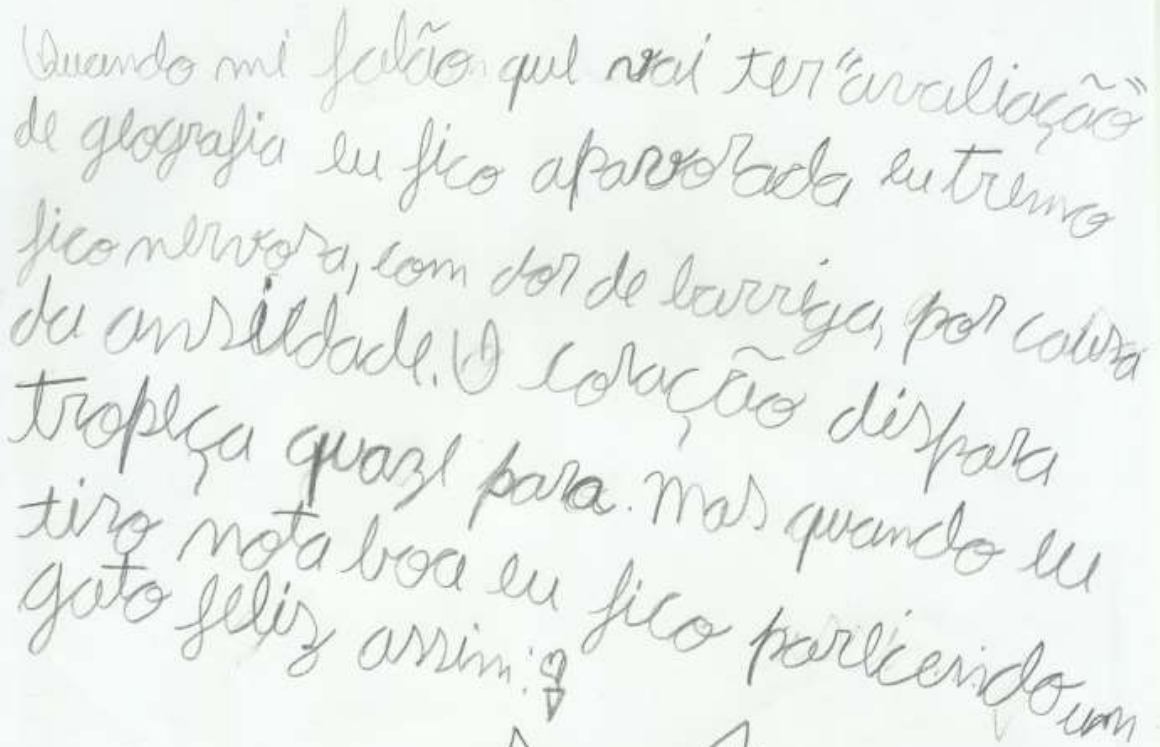 Quando mi falão que vai ter "avaliação"
de geografia eu fico apavorada eu tremo
fico nervosa, com dor de barriga, por causa
da ansiedade. O coração dispara
tropeça quaze para. Mas quando eu
tiro nota boa eu fico parecendo um
gato feliz assim: